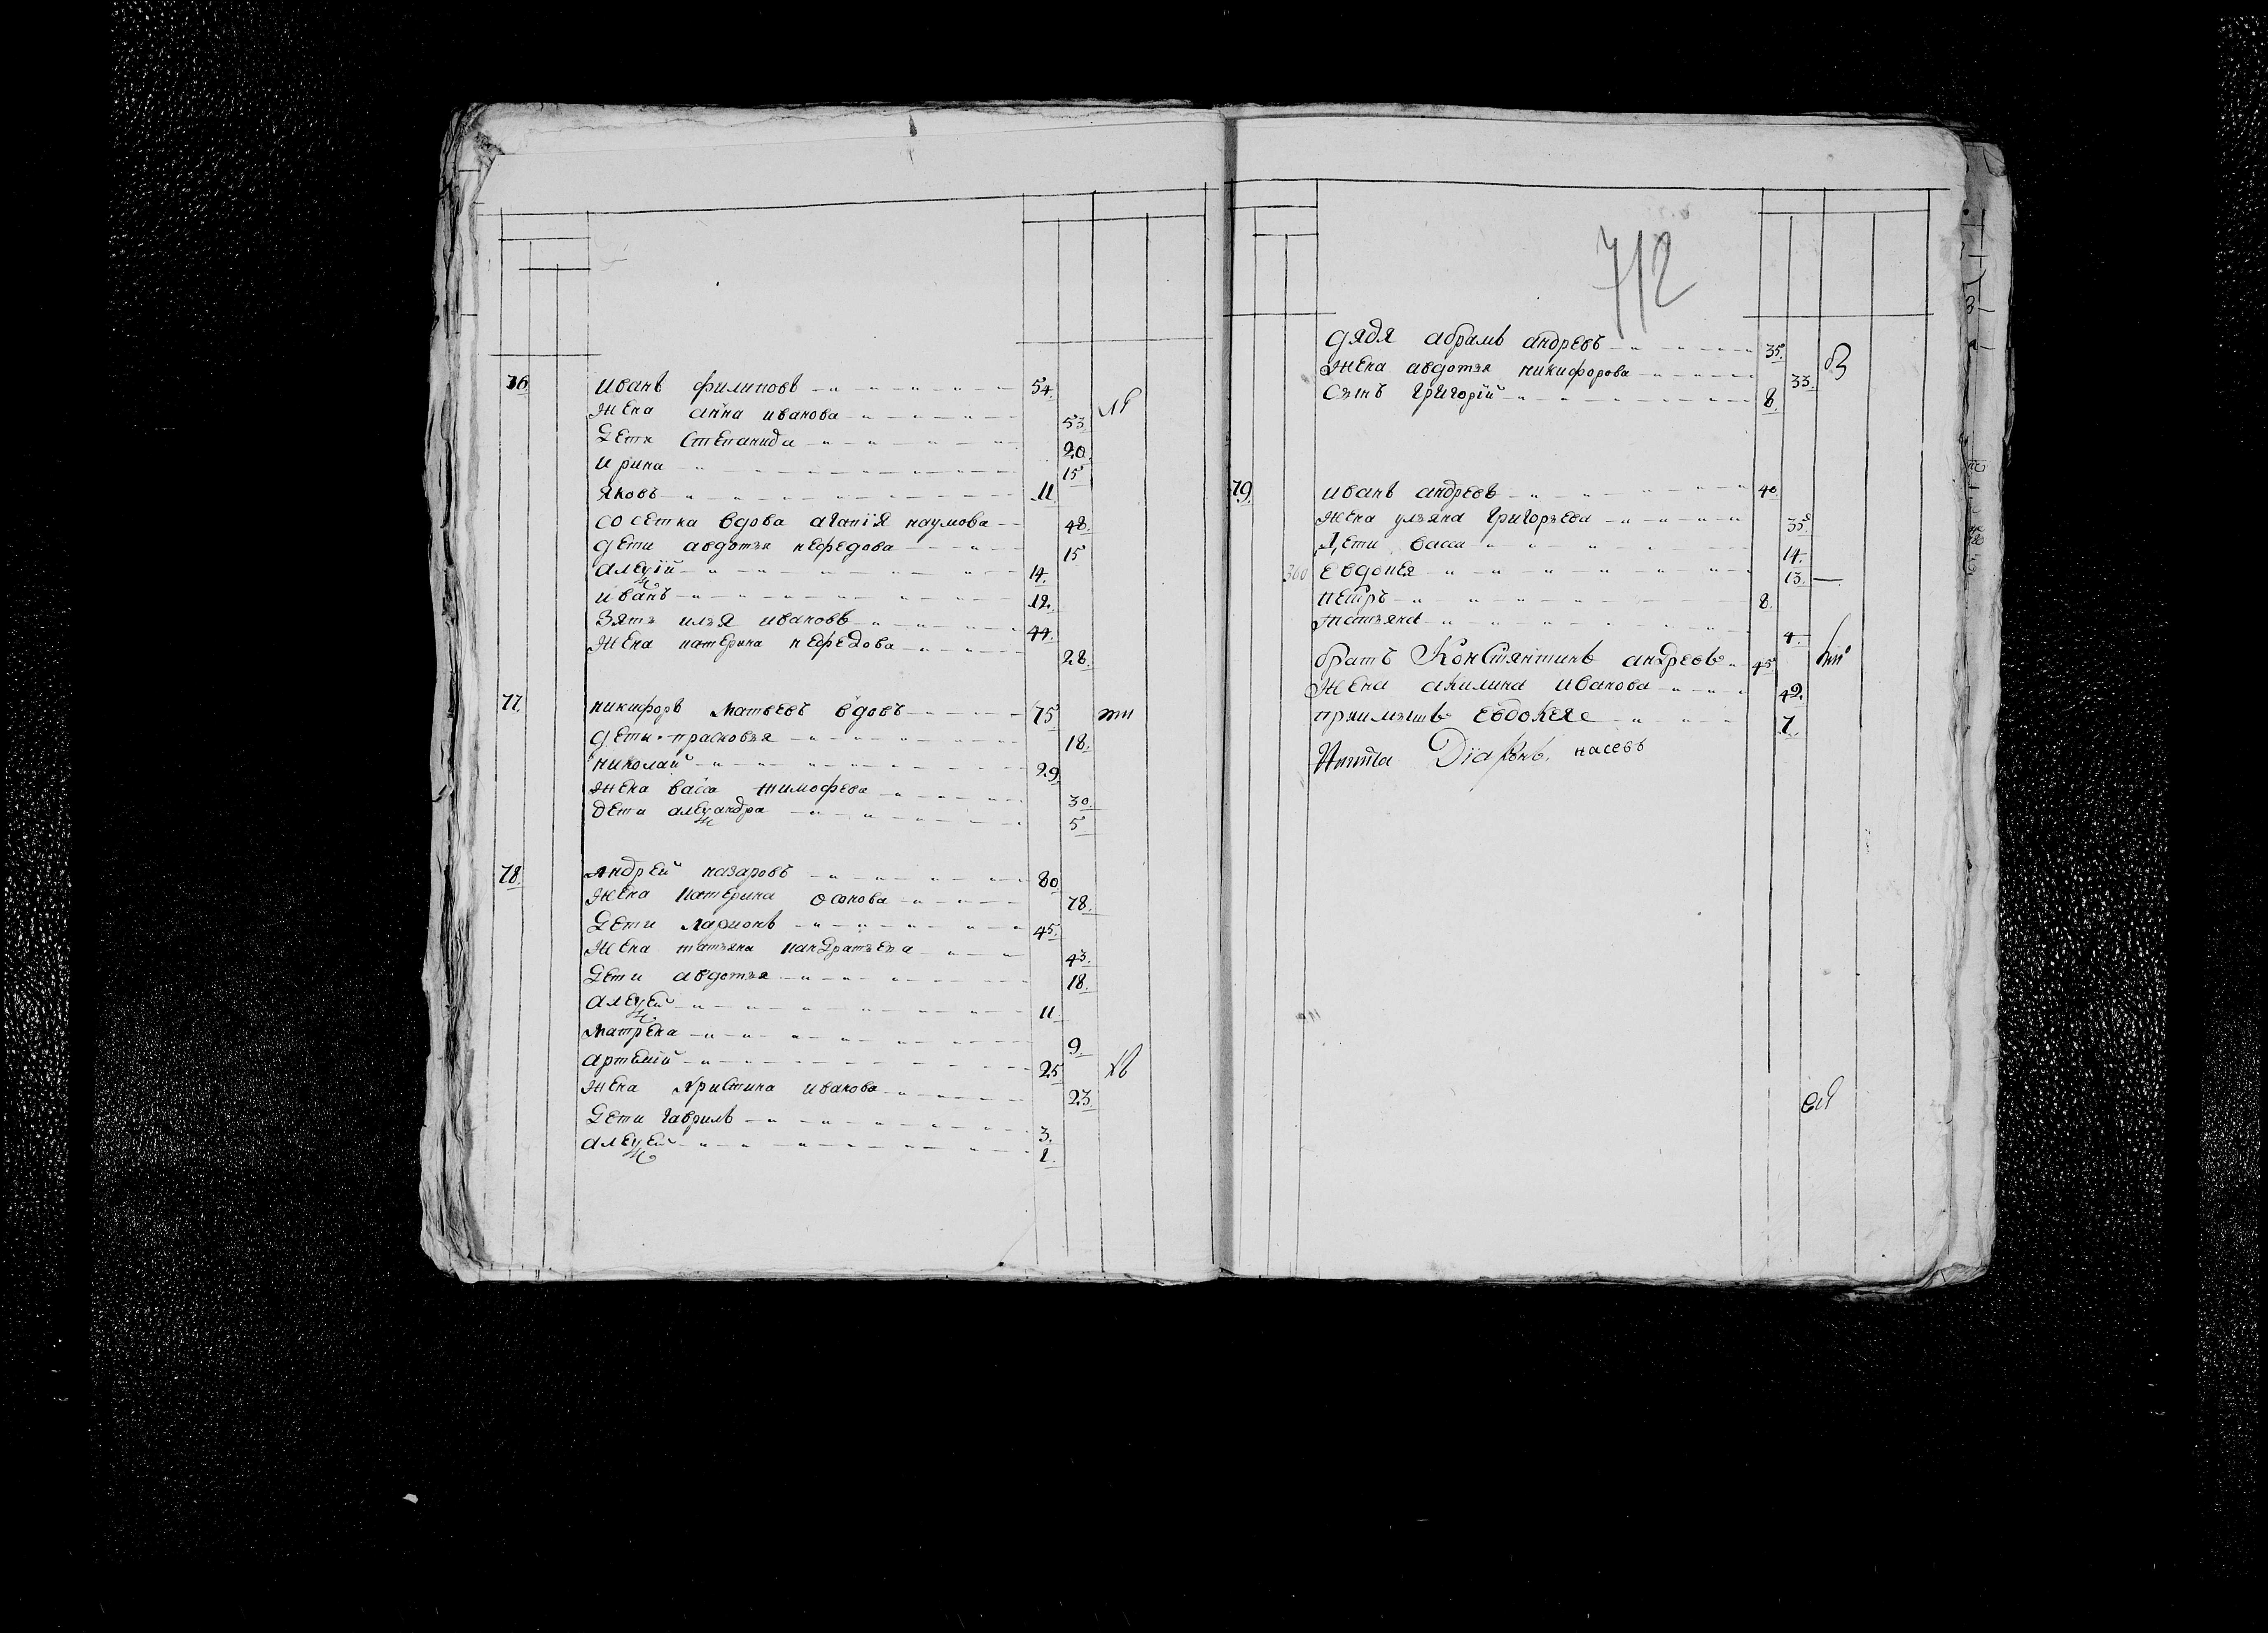 76 иванъ филиповъ 54.
жена анна иванова 53.
дети степанида 20
ирина 15
яковъ 11
сосетка вдова агапїя наумова 48.
дети авдотья нефедова 15
алеѯїй 14.
иванъ 12.
зять илья ивановъ 44.
жена катерина нефедова 28.
77. никифоръ матвеевъ вдовъ 75
дети прасковья 18.
николай 29
жена васса тимофеева 30.
дети алеѯандра 5
78. андрей назаровъ 80
жена катерина осонова 78.
дети ларионъ 45.
жена татьяна кандратьева 43.
дети авдотья 18.
алеѯей 11
матрена 9
артемїй 25
жена христина иванова 23.
дети гаврилъ 3.
алеѯей 1.
712
дядя абрамъ андреевъ 35.
жена авдотья никифорова 33.
сынъ григорїй 8.
79. иванъ андреевъ 40
жена ульяна григорьева 35
дети васса 14.
360 евдокея 13.
петръ 8.
татьяна 4.
братъ константинъ андреевъ 45
жена акилина иванова 49.
приимышъ евдокея 7.
Дїаконъ